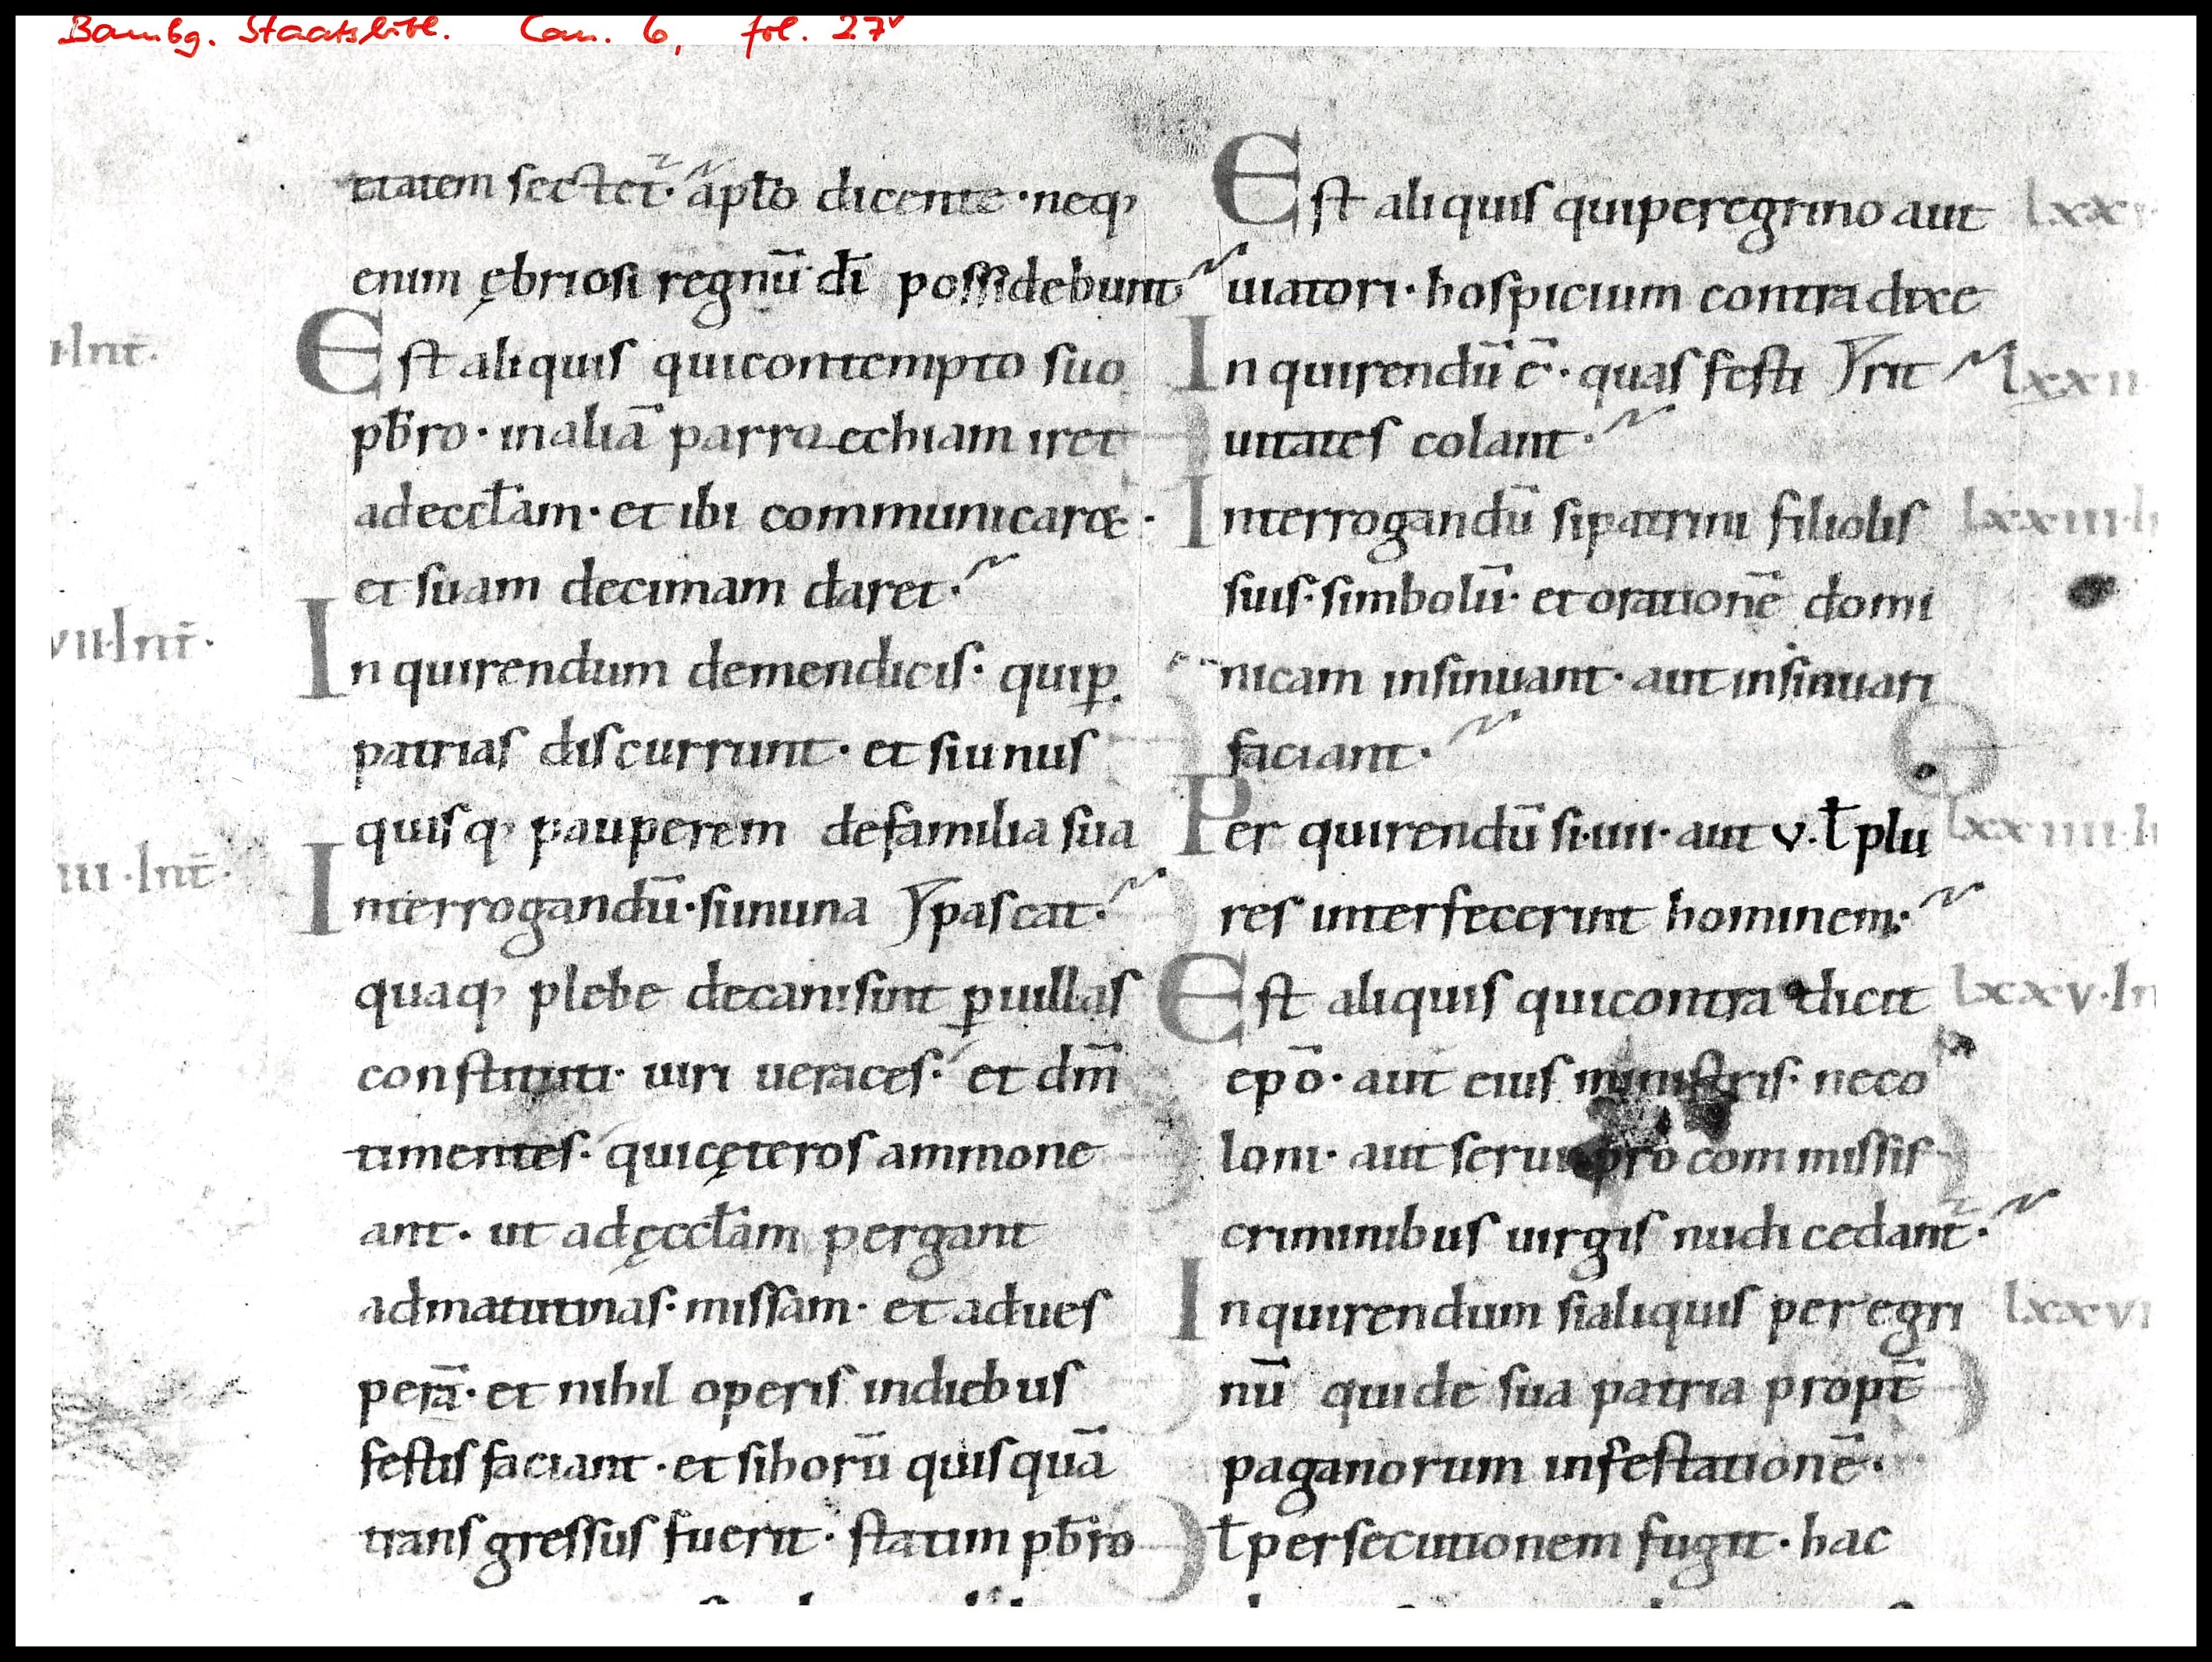 Bambg. Staatsbibl. Can. 6, fol. 27v
tiatem sectet̄· apl̄o dicente · neq;
enim ębriosi regnū dī possidebunt
Est aliquis qui contempto suo
pb̄ro· in aliā parroechiam iret
ad eccl̄am· et ibi communicaret·
et suam decimam daret·
Inquirendum de mendicis· qui ꝑ
patrias discurrunt· et si unus
quisq; pauperem de familia sua
Interrogandū· si in una pascat·
quaq; plebe decani sint ꝑ uillas
constituti· uiri ueraces· et dm̄
timentes· qui cęteros ammone
ant· ut ad ęccl̄am pergant
ad matutinas· missam· et ad ues
perā· et nihil operis in diebus
festis faciant· et si horū quisquā
transgressus fuerit· statim pb̄ro
·Int̄·
vii·Int̄·
iii·Int̄·
Est aliquis qui peregrino aut
uiatori· hospicium contradixe
Inquirendū ē· quas festi rit
uitates colant·
Interrogandū si patrini filiolis
suis· simbolū· et orationē domi
nicam insinuant· aut insinuari
faciant·
Perquirendū si· iiii· aut v· ł plu
res interfecerint hominem·
Est aliquis qui contradicit
epō· aut eius ministris· ne co
loni· aut serui pro commissis
criminibus uirgis nudi cedant̄·
Inquirendum si aliquis peregri
nū qui de sua patria propt̄
paganorum infestationē·
ł persecutionem fugit· hac
lxx
lxxii
lxxiii·I
lxxiiii·I
lxxv·In
lxxvi